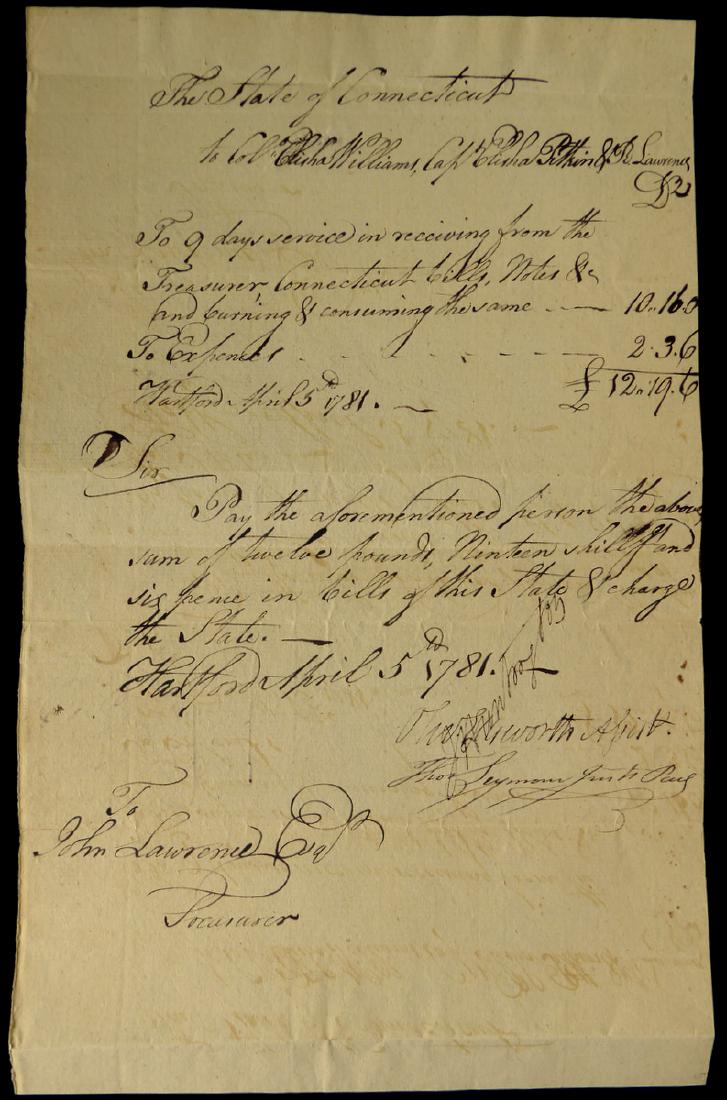 The State of Connecticut
to Colo Elisha Williams, Cap Elisha Pitkin & R Lawrence
Dr
To 9 days service in receiving from the
Treasurer Connecticut bills, Notes &c
and burning & consuming the same 10..16.0
To Expences 2.3.6
Hartford April 5th 1781. £12..19.6
Sir
Pay the aforementioned person the above
sum of twelve pounds, Ninteen shills and
six pence in bills of this State & charge
the State.
Hartford April 5th 1781.
Ellsworth Assist.
Thos Seymour Just Peace
To
John Lawrence Esqr
Treasurer